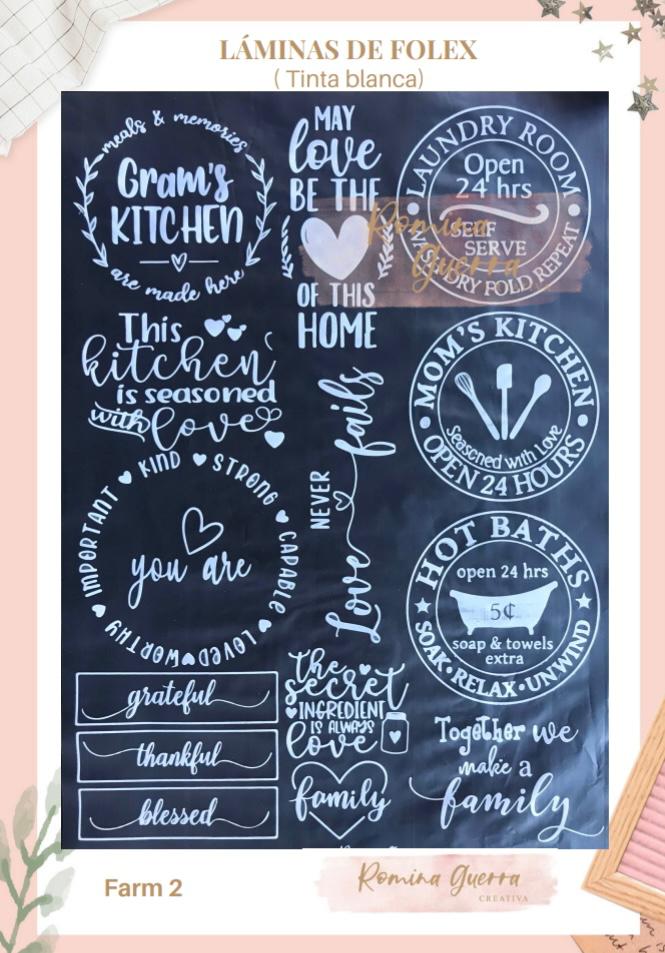 LÁMINAS DE FOLEX
( Tinta blanca)
meals & memories
Gram's
KITCHEN
are made here
MAY
love
BE THE
OF THIS
HOME
LAUNDRY ROOM
Open
24 hrs
SELF
SERVE
WASH DRY FOLD REPEAT
Romina
Guerra
This
kitchen
is seasoned
with love
Love NEVER fails
MOM'S KITCHEN
Seasoned with Love
OPEN 24 HOURS
KIND STRONG CAPABLE LOVED WORTHY IMPORTANT
you are
HOT BATHS
open 24 hrs
5¢
soap & towels
extra
SOAK • RELAX • UNWIND
grateful
thankful
blessed
the
secret
INGREDIENT
IS ALWAYS
love
family
Together we
make a
family
Farm 2
Romina Guerra
CREATIVA